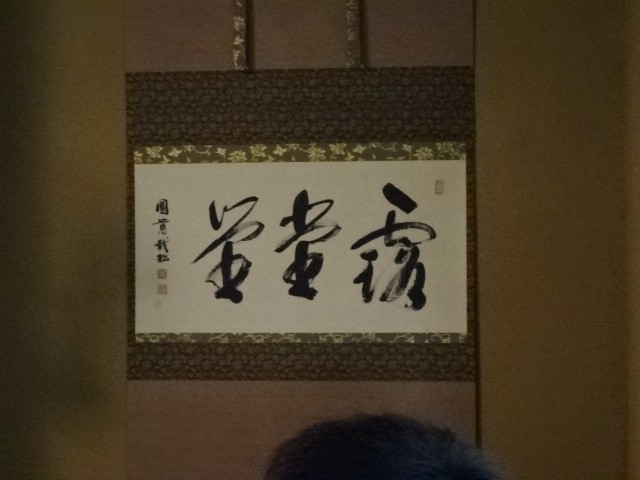 露堂堂
圓覚